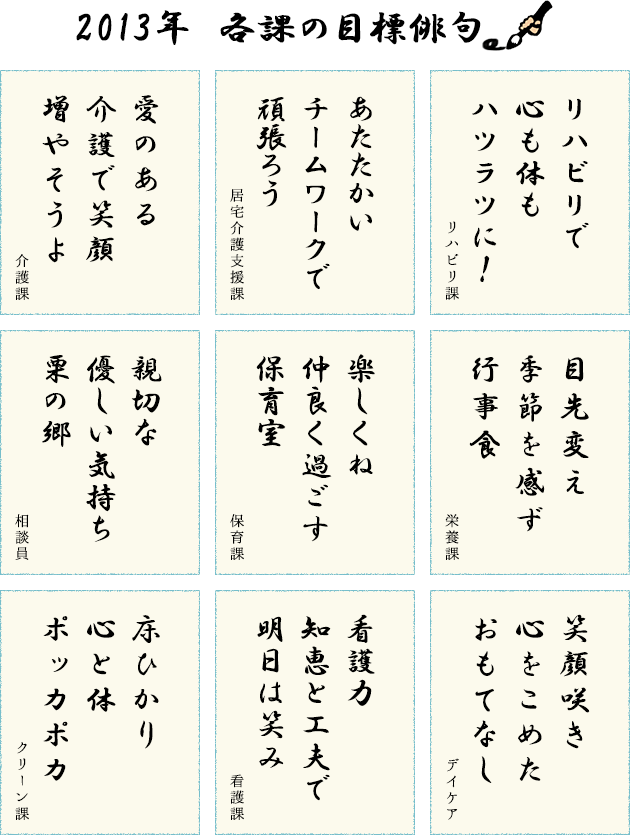 2013年 各課の目標俳句
リハビリで
心も体も
ハツラツに！
リハビリ課
あたたかい
チームワークで
頑張ろう
居宅介護支援課
愛のある
介護で笑顔
増やそうよ
介護課
目先変え
季節を感ず
行事食
栄養課
楽しくね
仲良く過ごす
保育室
保育課
親切な
優しい気持ち
栗の郷
相談員
笑顔咲き
心をこめた
おもてなし
デイケア
看護力
知恵と工夫で
明日は笑み
看護課
床ひかり
心と体
ポッカポカ
クリーン課